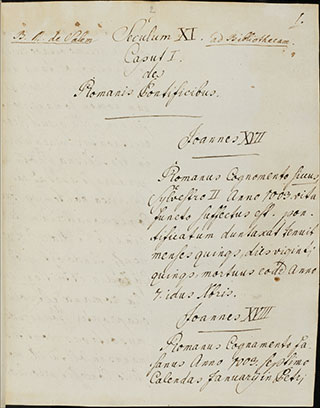 1.
B. V. de Salem
Seculum XI.
ad Bibliothecam
Caput I.
des
Romanis Pontificibus.
Joannes XVII
Romanus Cognomento siccus,
Sylvestro II Anno 1003. vita
functo suffectus est. pon-
tificatum dunlaxat tenuit
menses quinqs, dies viginti
quinqs, mortuus eodē Anno
7. idus Xbris.
Joannes XVIII
Romanus Cognomento Fa-
sanus Anno 1003 septimo
Calendas Januarij in Petri